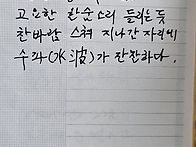 고요한 한숨소리 들리는 듯
찬바람 스쳐 지나간 자리엔
수파(水波)가 잔잔하다.